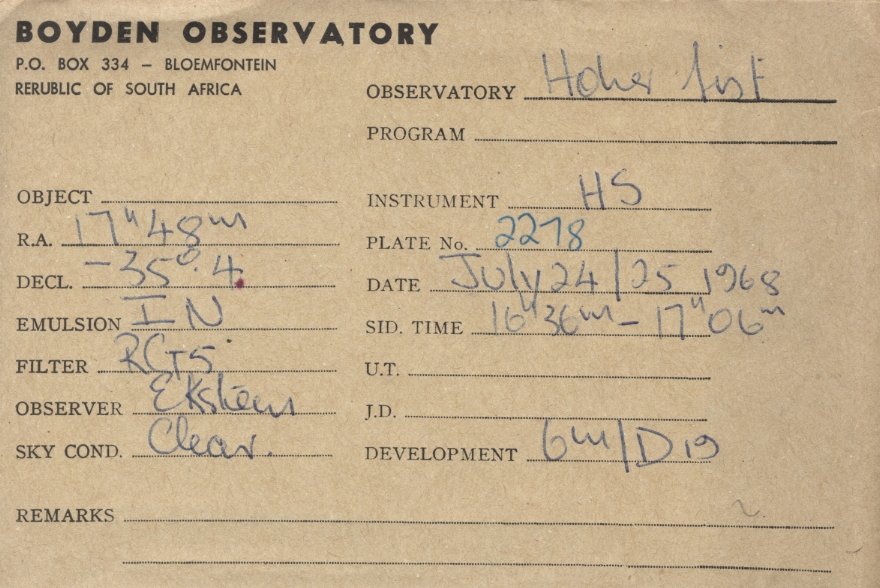 BOYDEN OBSERVATORY
P.O. BOX 334 – BLOEMFONTEIN
RERUBLIC OF SOUTH AFRICA
OBSERVATORY Hoher list
PROGRAM
OBJECT
INSTRUMENT HS
R.A. 17h 48m
PLATE No. 2278
DECL. -35°.4
DATE July 24/25 1968
EMULSION IN
SID. TIME 16h36m – 17h06m
FILTER
U.T.
OBSERVER Eksteen
J.D.
SKY COND. Clear.
DEVELOPMENT 6m/D19
REMARKS